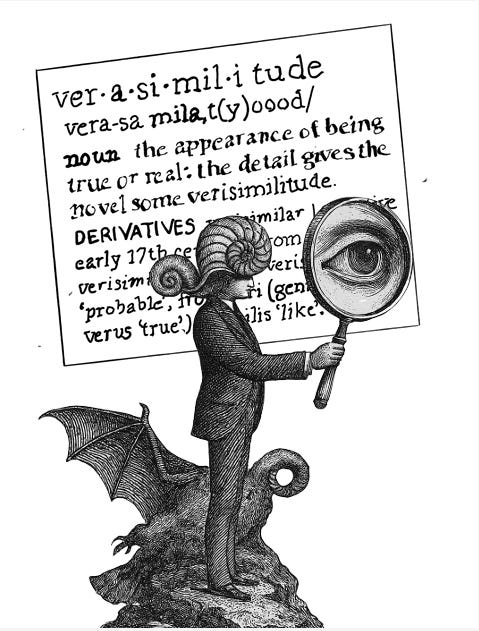 ver·a·si·mil·i tude
vera-sa mila,t(y)oood/
noun the appearance of being
true or real: the detail gives the
novel some verisimilitude.
DERIVATIVES
early 17th
verisim
'probable',
verus 'true'.) 'like'.